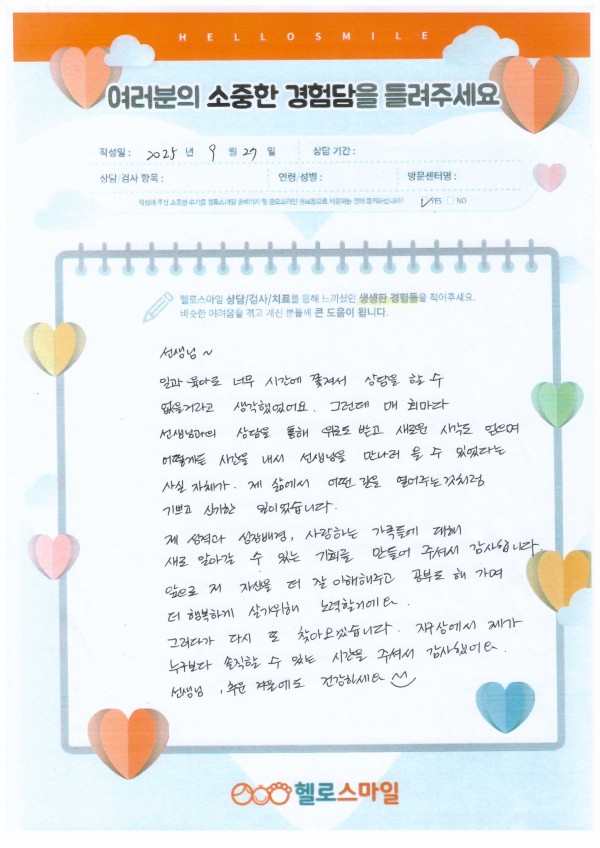 HELLOSMILE
여러분의 소중한 경험담을 들려주세요
작성일 : 2025 년 9 월 27 일 상담 기간 :
상담/검사 항목 : 연령/성별 : 방문센터명 :
작성해 주신 소중한 후기를 헬로스마일 홈페이지 및 온오프라인 홍보용으로 사용하는 것에 동의하십니까? YES NO
헬로스마일 상담/검사/치료를 통해 느끼셨던 생생한 경험들을 적어주세요.
비슷한 어려움을 겪고 계신 분들께 큰 도움이 됩니다.
선생님~
일과 육아로 너무 시간에 쫓겨서 상담을 할 수
없을거라고 생각했었어요. 그런데 매 회마다
선생님과의 상담을 통해 위로도 받고 새로운 시각도 얻으며
어떻게든 시간을 내서 선생님을 만나러 올 수 있었다는
사실 자체가. 제 삶에서 어떤 길을 열어주는것처럼
기쁘고 신기한 일이었습니다.
제 성격과 성장배경, 사랑하는 가족들에 대해
새로 알아갈 수 있는 기회를 만들어 주셔서 감사합니다.
앞으로 저 자신을 더 잘 이해해주고 공부도 해 가며
더 행복하게 살기위해 노력할거에요.
그러다가 다시 또 찾아오겠습니다. 지구상에서 제가
누구보다 솔직할 수 있는 시간을 주셔서 감사했어요.
선생님, 추운 겨울에도 건강하세요
헬로스마일